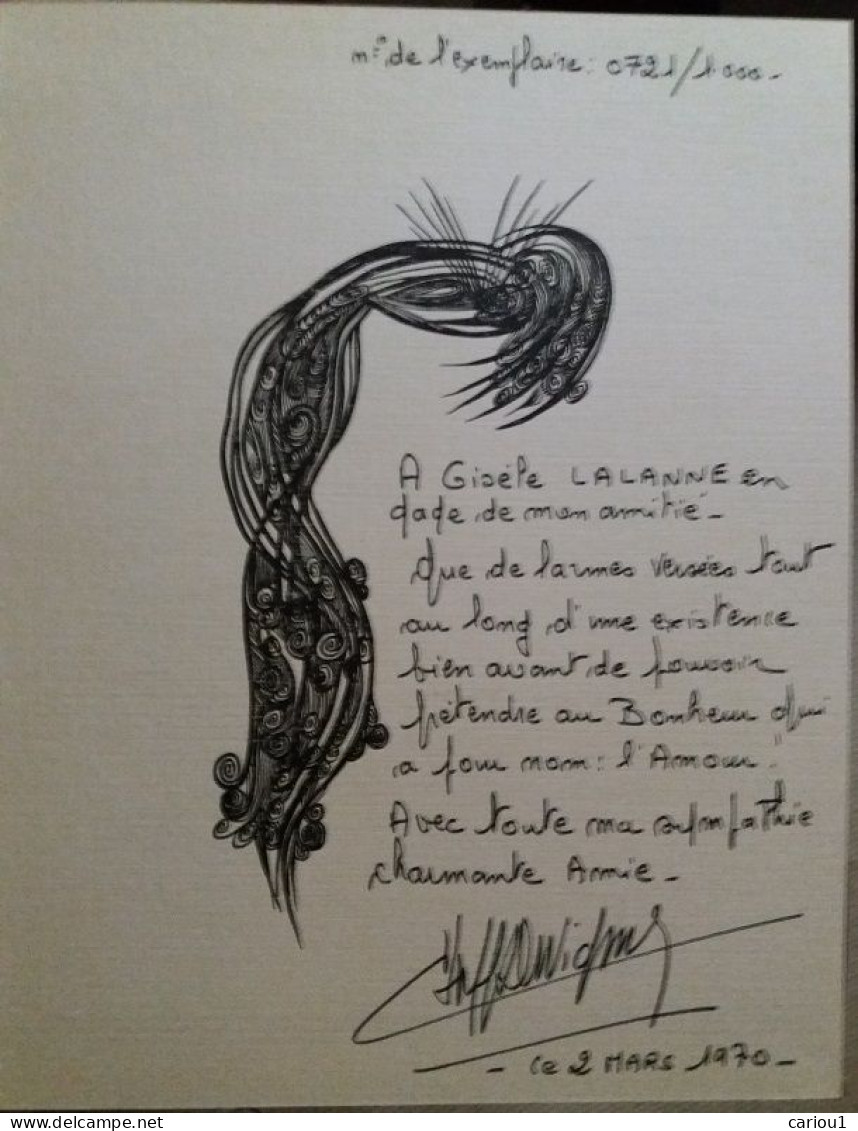 n° de l'exemplaire : 0721/1.000 -
A Gisèle LALANNE en
gage de mon amitié -
Que de larmes versées tout
au long d'une existence
bien avant de pouvoir
prétendre au Bonheur qui
a pour nom : l'Amour"
Avec toute ma sympathie
charmante Amie -
- Le 2 MARS 1970 -
cariou1